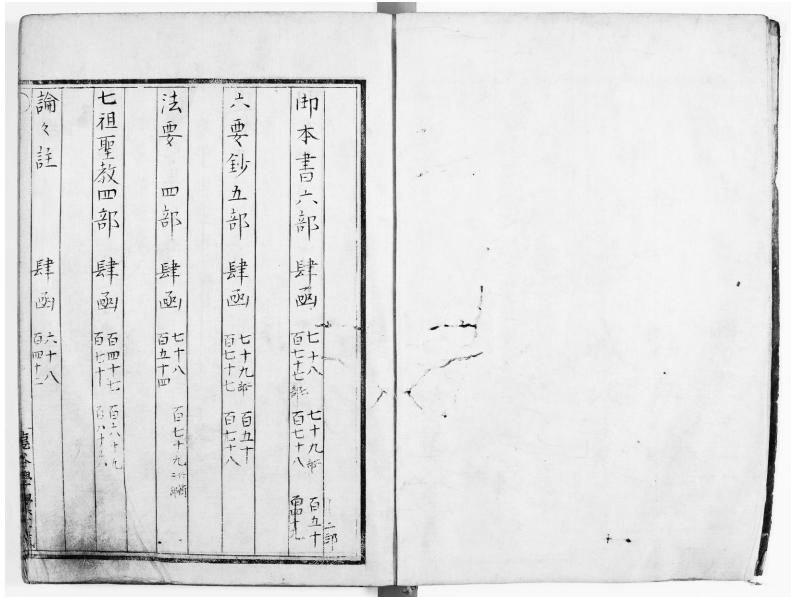 御本書六部 肆函 七十八 百七十七 七十九 百七十八 百五十
二部
六要鈔五部 肆函 七十九 百七十七 百五十 百七十八
法要 四部 肆函 七十八 百五十四 百七十九
七祖聖教四部 肆函 百四十七 百七十 百六十九
論々註 肆函 六十八 百四十二